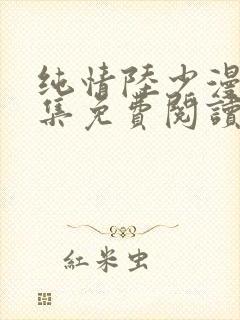 纯情陸少漫
集免費閱讀
紅米虫